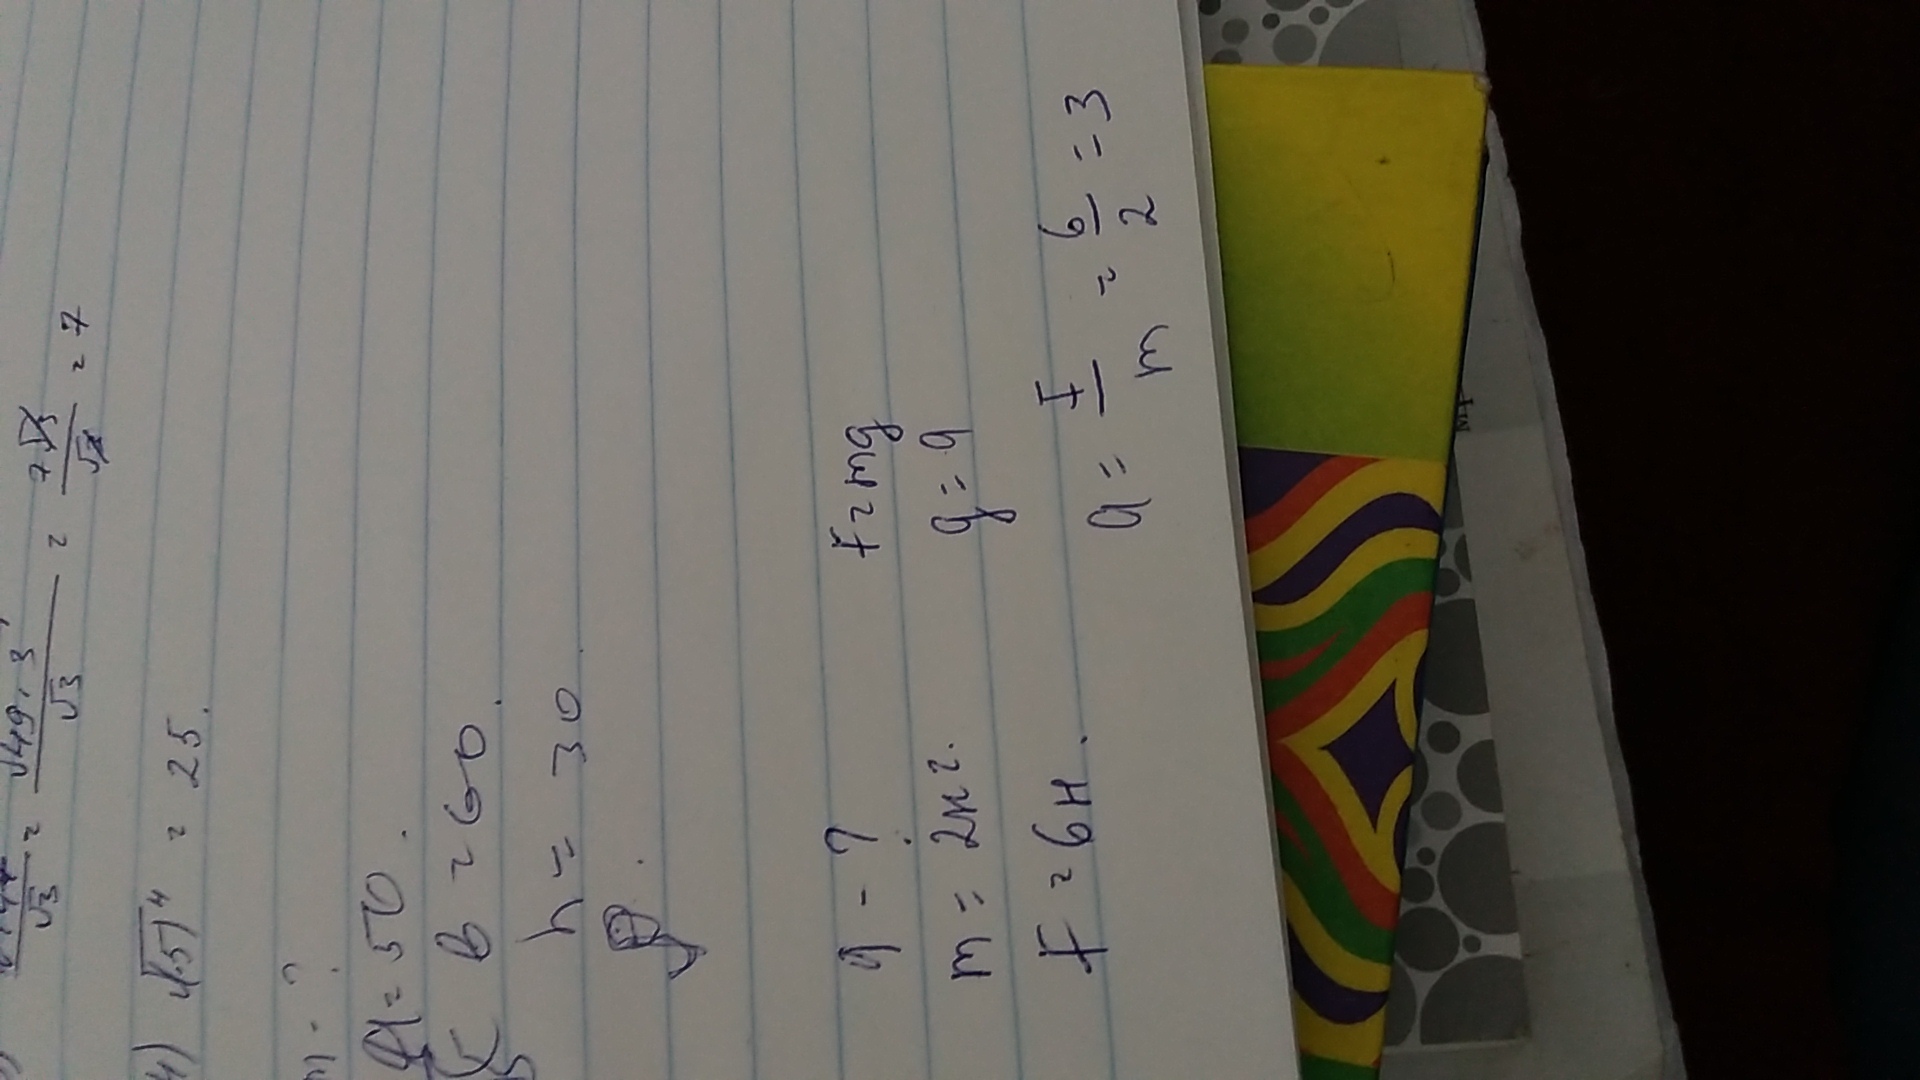 √49·3 / √3 = 7√3 / √3 = 7
4) √5)⁴ = 25.
m - ?
= 50.
B = 60.
h = 30
a - ?
m = 2кг.
F = 6Н.
F = mg
g = a
a = F/m = 6/2 = 3